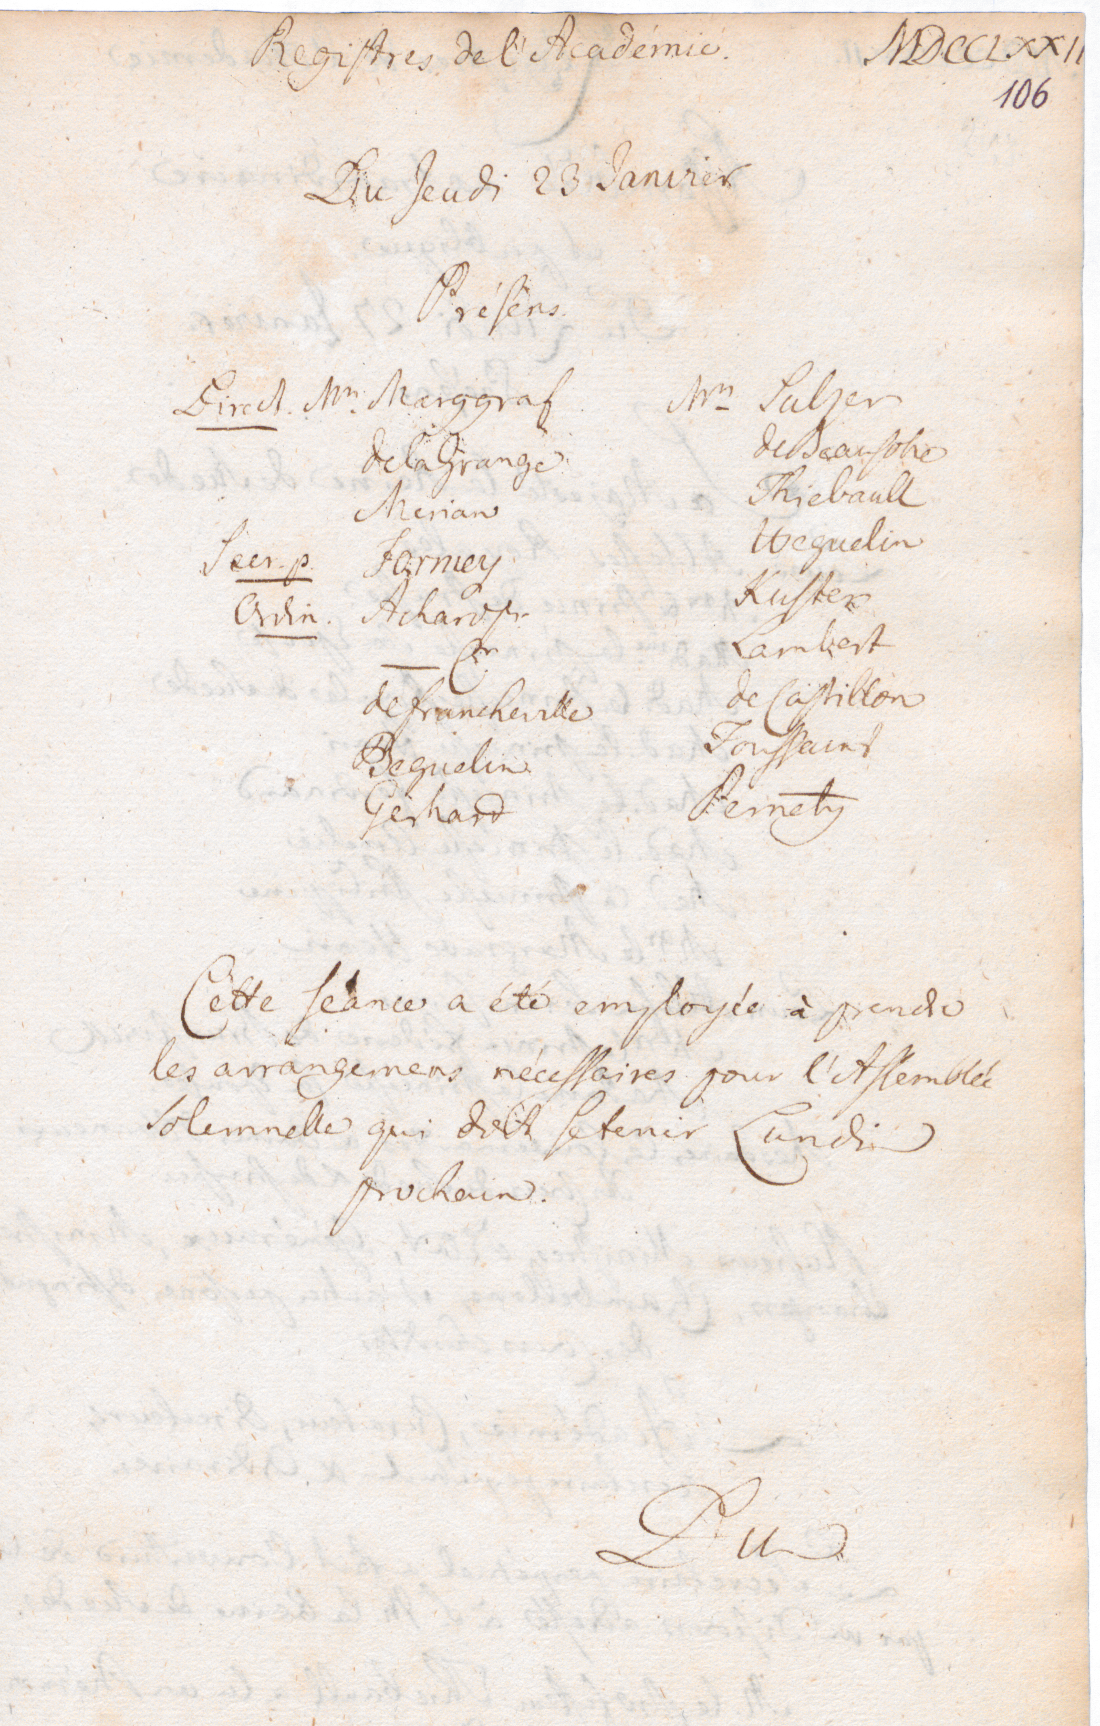 Registres de l'Académie.
MDCCLXXII
106
Du Jeudi 23 Janvier
Présens.
Direct. Mrs. Marggraf
de la Grange
Merian
Secr. p. Formey
Ordin. Achard pr.
— Cr.
de Francheville
Beguelin
Gerhard
Mrs Sulzer
de Beausobre
Thiebault
Weguelin
Kuster
Lambert
de Castillon
Toussaint
Pernety
Cette séance a été employée à prendre
les arrangemens nécessaires pour l'Assemblée
solemnelle qui doit se tenir Lundi
prochain.
Du